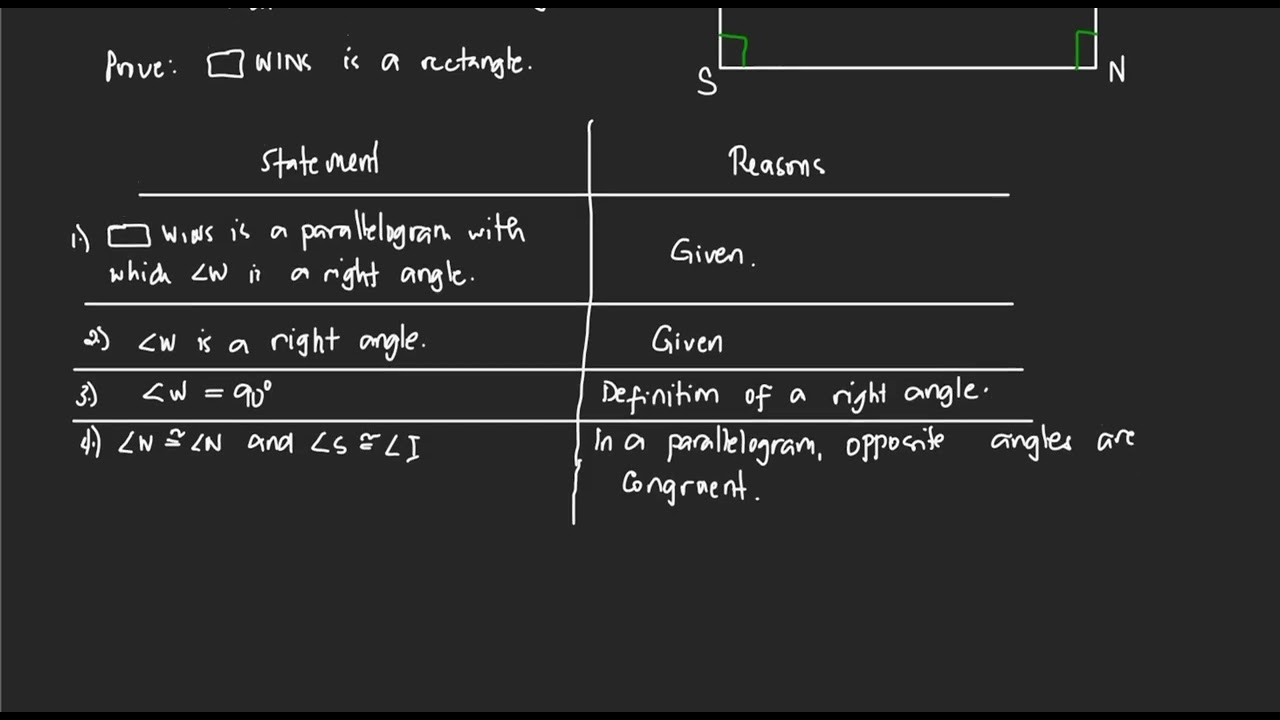 Prove: ▭ WINS is a rectangle.
S
N
Statement
Reasons
1.) ▭ WINS is a parallelogram with
which ∠W is a right angle.
Given.
2.) ∠W is a right angle.
Given
3.) ∠W = 90°
Definition of a right angle.
4.) ∠W ≅ ∠N and ∠S ≅ ∠I
In a parallelogram, opposite angles are
congruent.